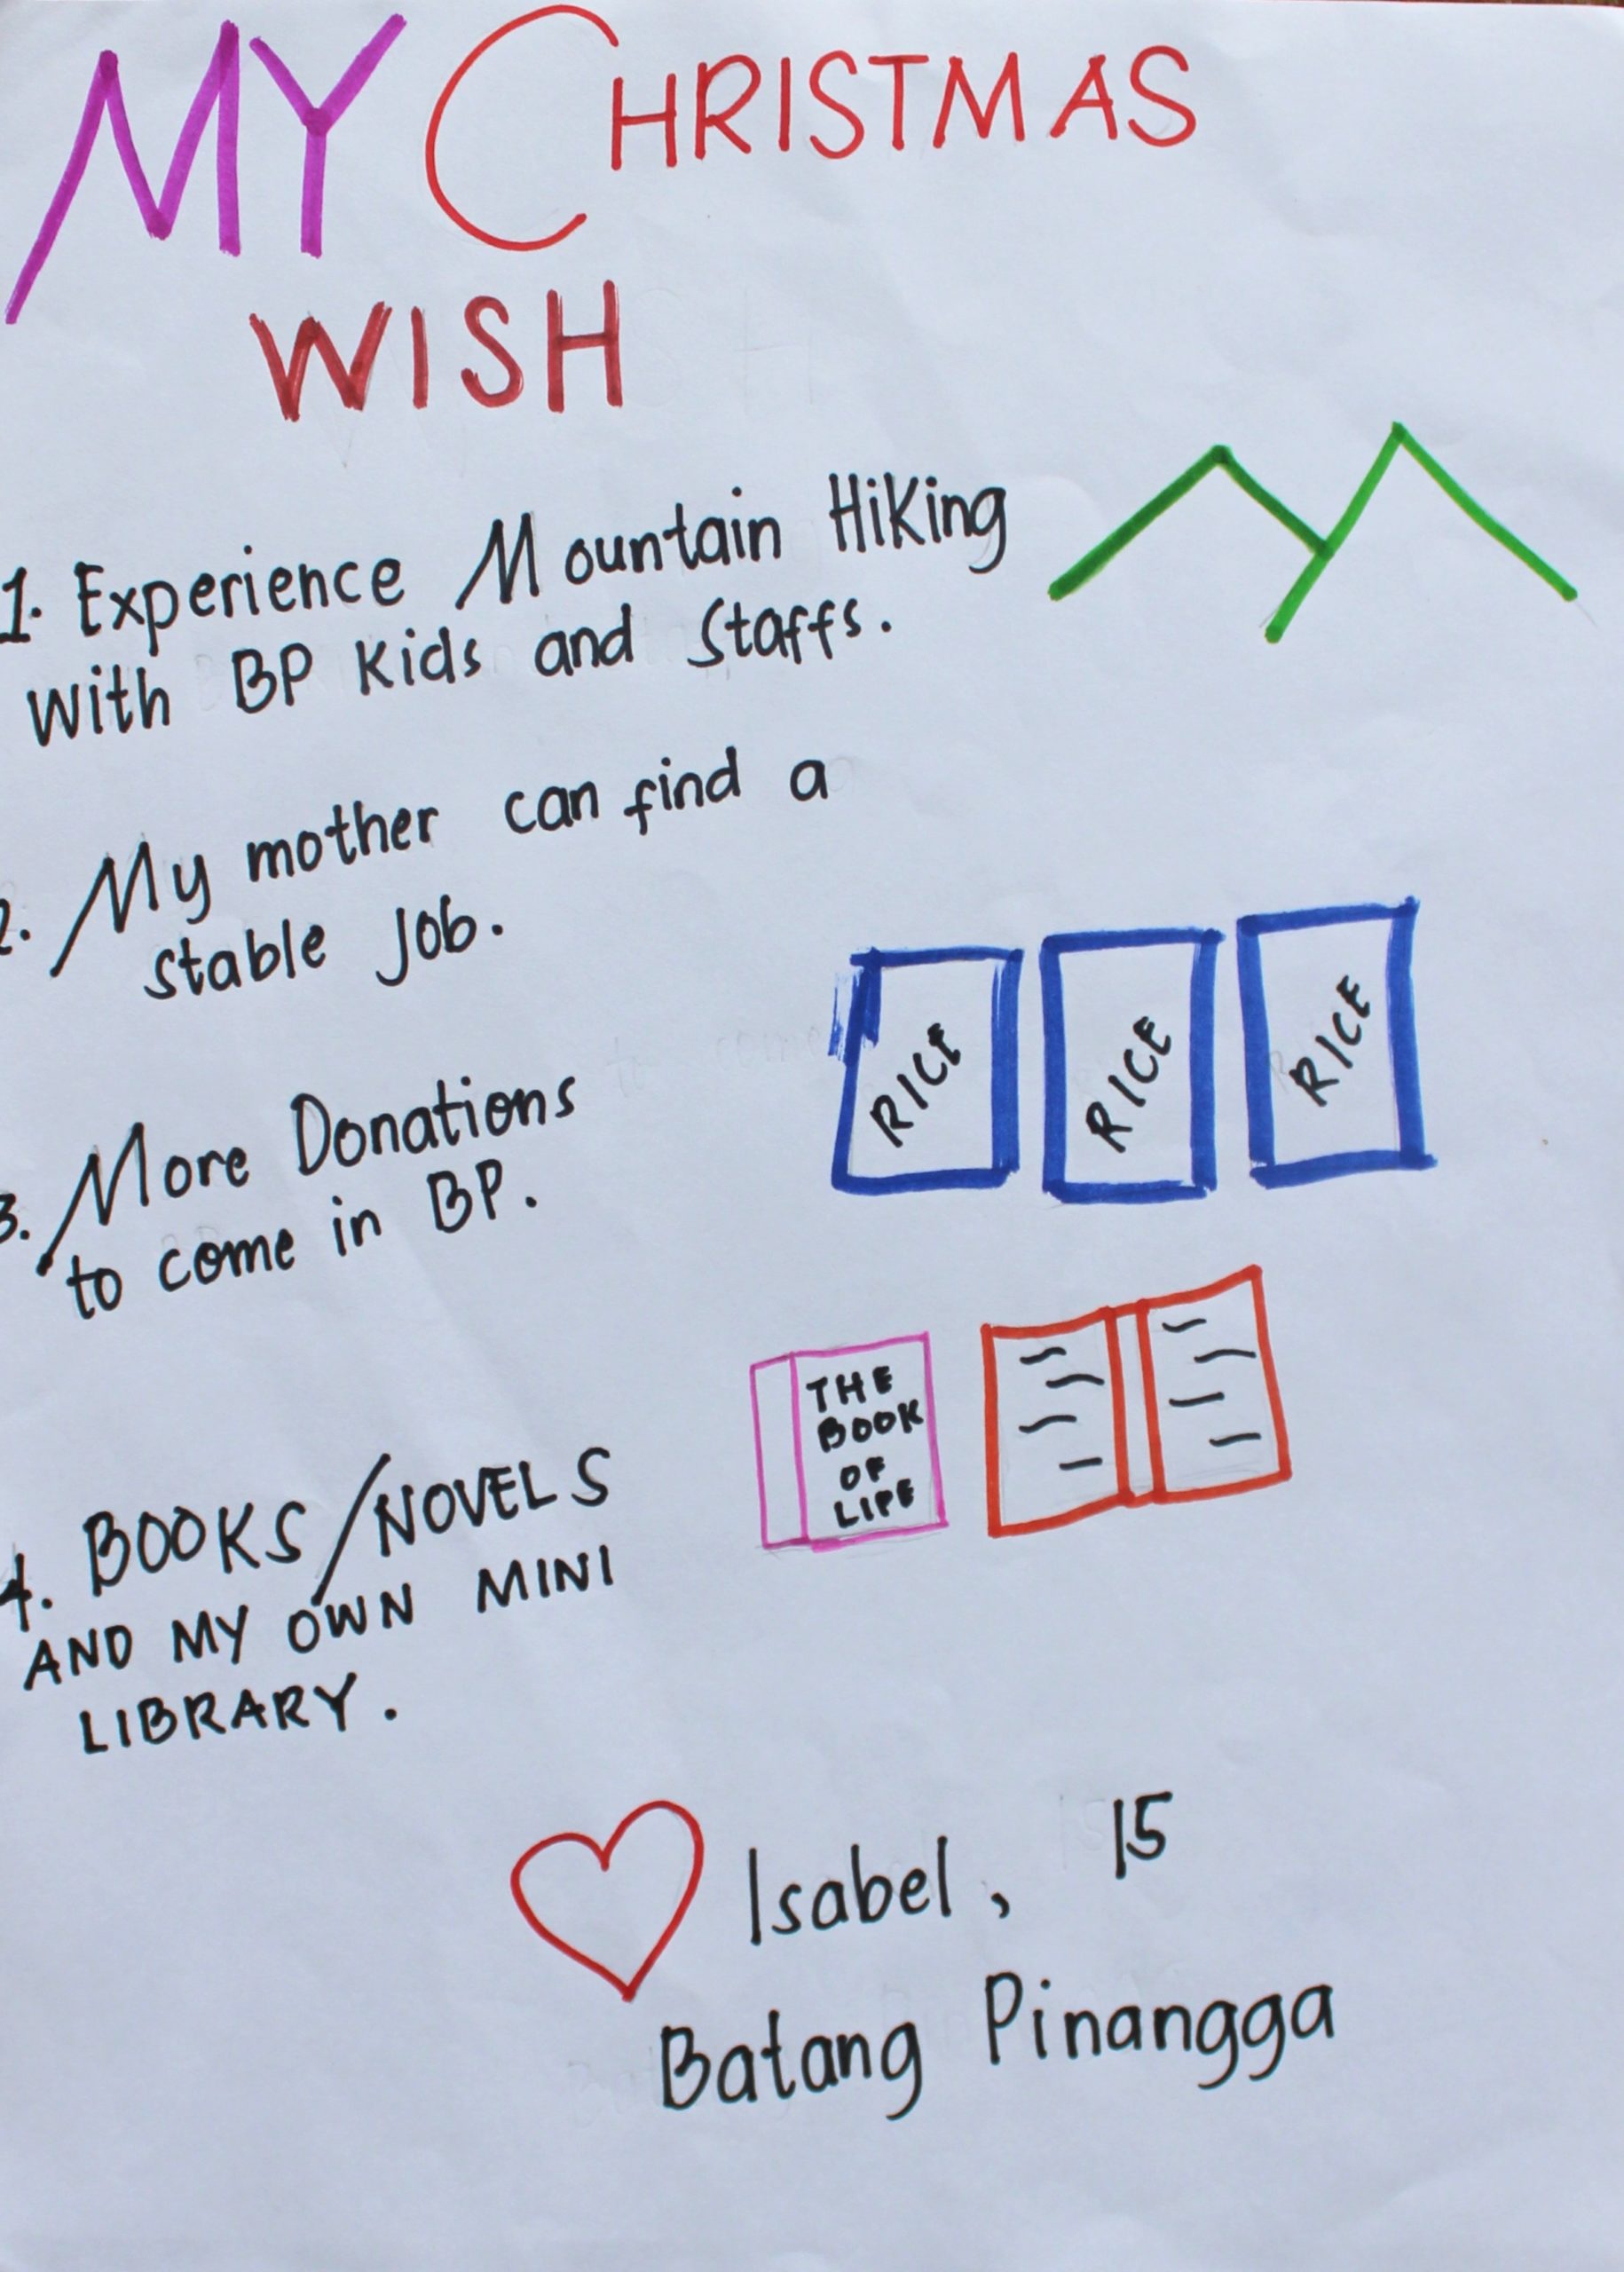 MY CHRISTMAS
WISH
1. Experience Mountain Hiking
with BP Kids and Staffs.
2. My mother can find a
stable Job.
RICE RICE RICE
3. More Donations
to come in BP.
THE
BOOK
OF
LIFE
4. BOOKS/NOVELS
AND MY OWN MINI
LIBRARY.
Isabel, 15
Batang Pinangga